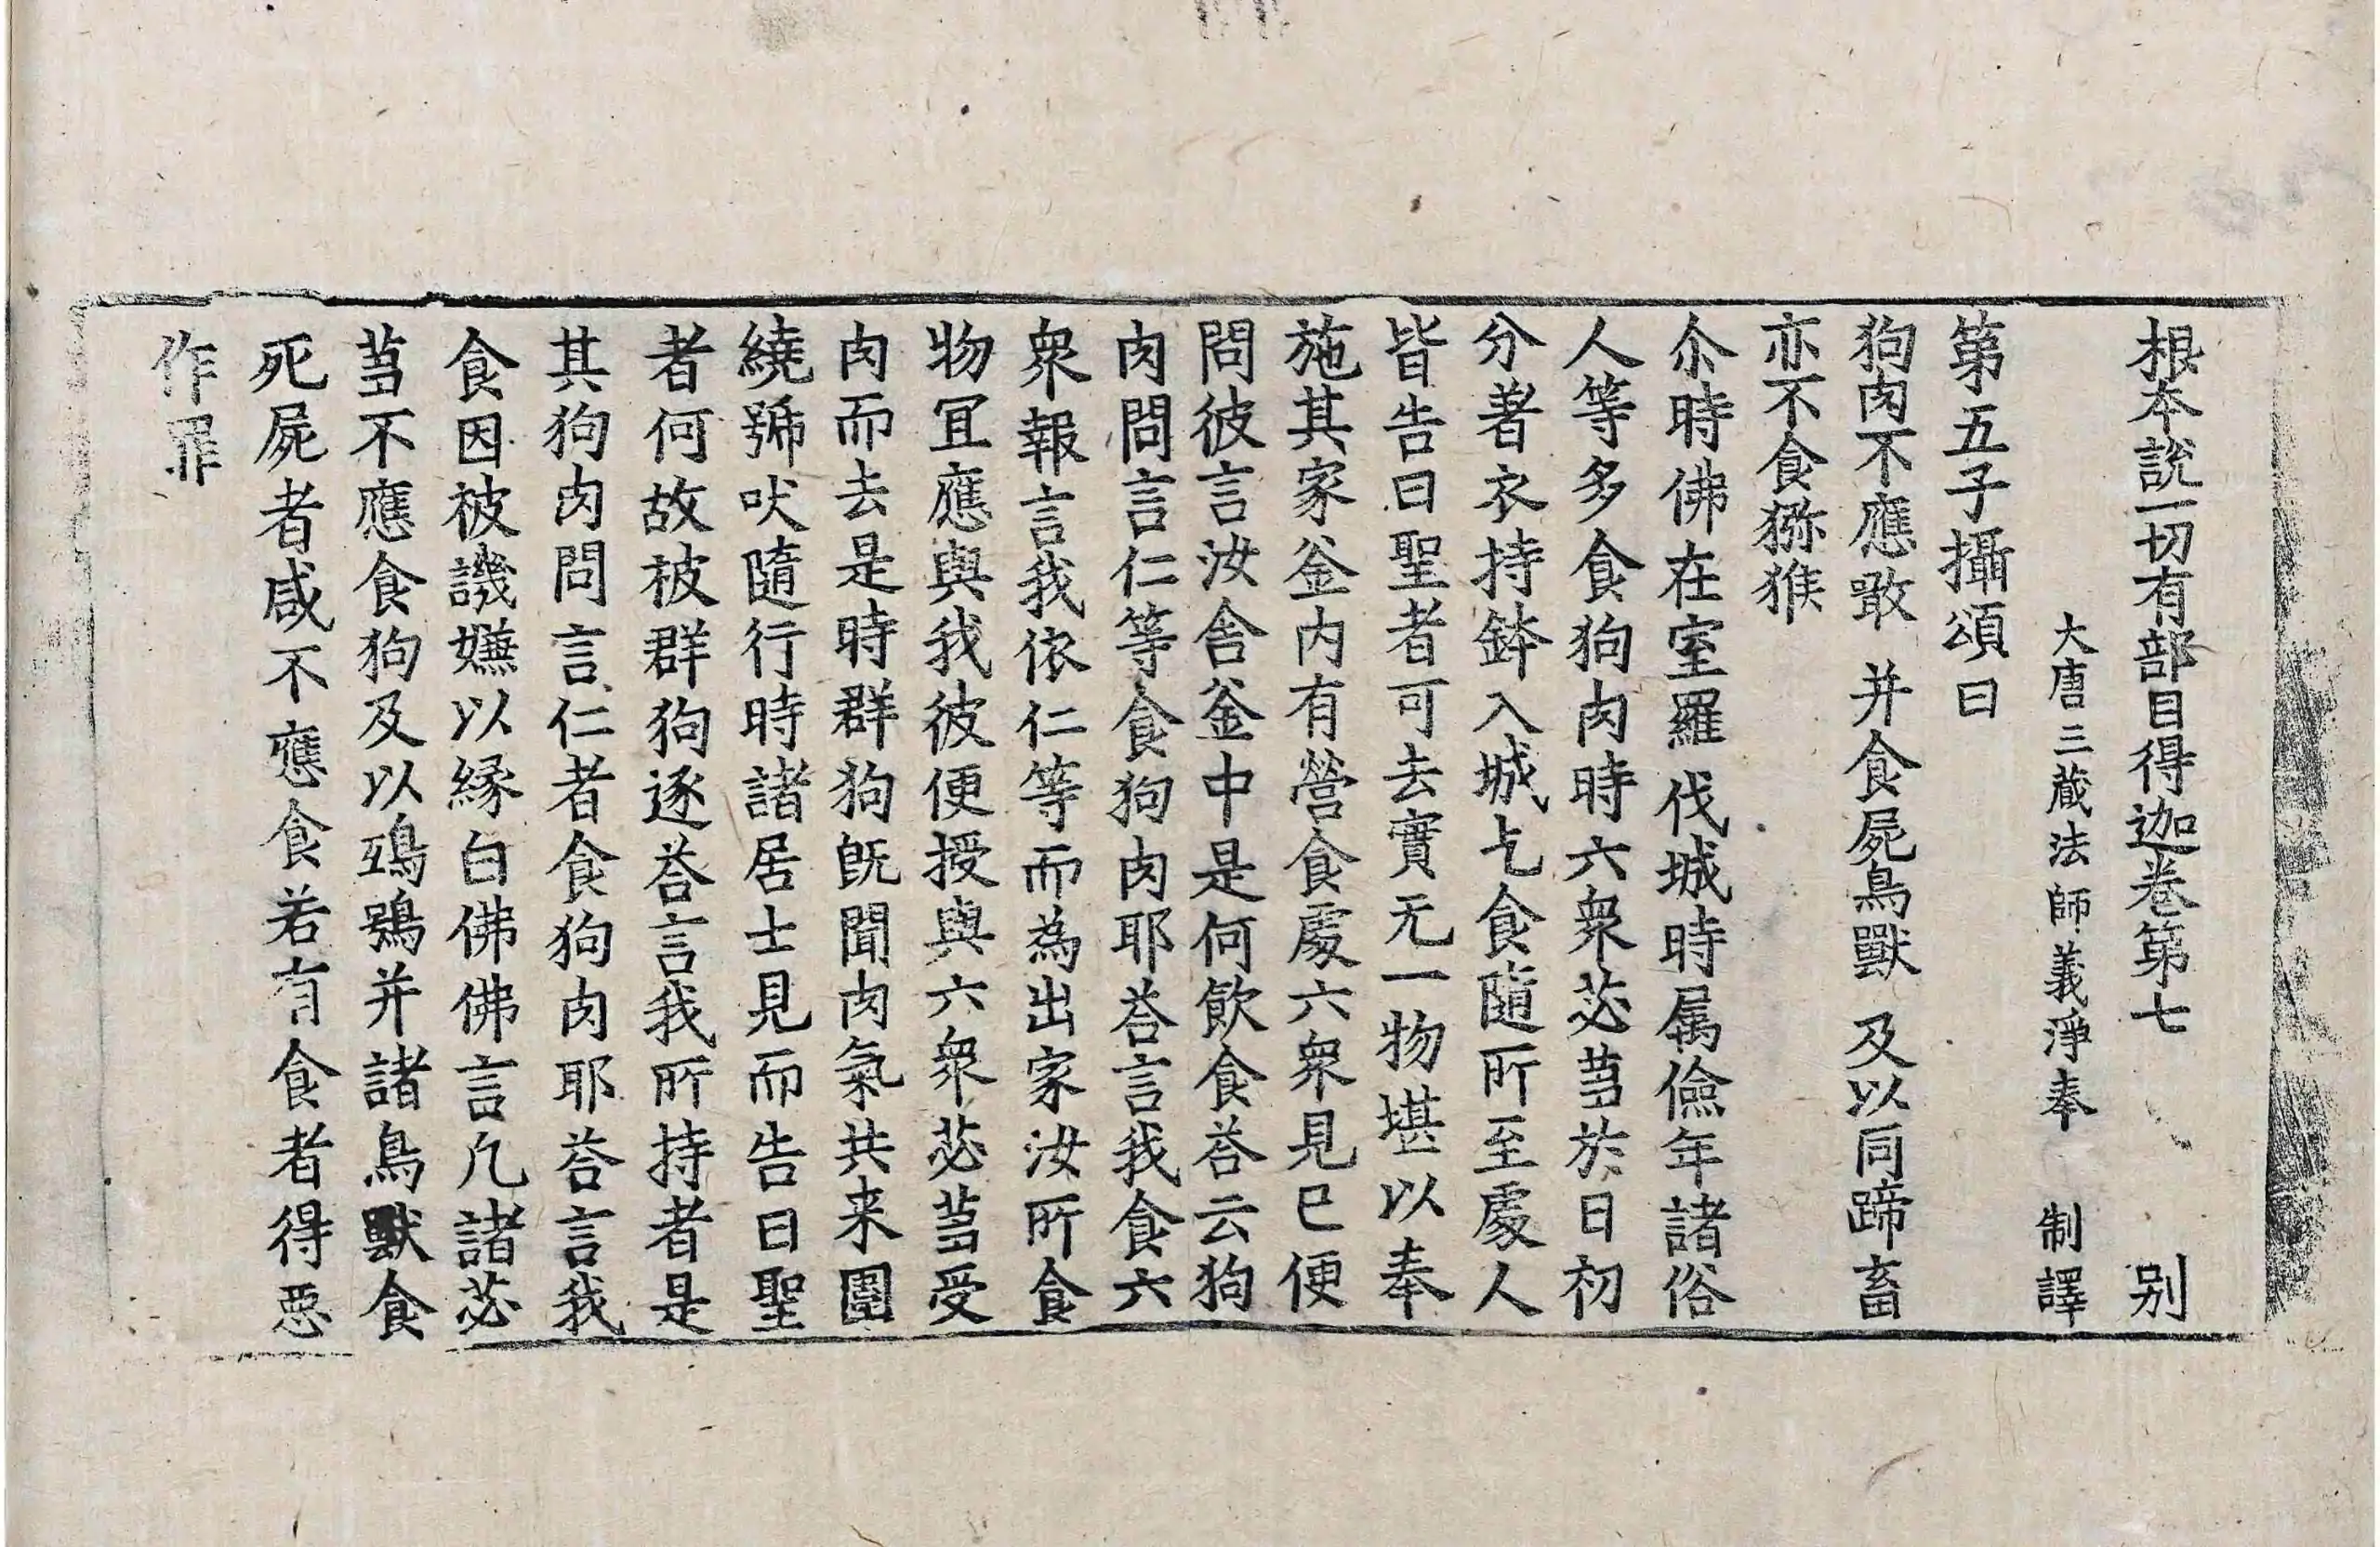 根本說一切有部目得迦卷第七 别
大唐三蔵法師義淨奉 制譯
第五子攝頌曰
狗肉不應噉 并食屍鳥獸 及以同蹄畜
亦不食獼猴
尒時佛在室羅伐城時属儉年諸俗
人等多食狗肉時六衆苾芻於日初
分著衣持鉢入城乞食隨所至處人
皆告曰聖者可去實无一物堪以奉
施其家釜內有營食處六衆見已便
問彼言汝舍釜中是何飲食荅云狗
肉問言仁等食狗肉耶荅言我食六
衆報言我依仁等而為出家汝所食
物冝應與我彼便授與六衆苾芻受
肉而去是時群狗旣聞肉氣共来圍
繞號吠隨行時諸居士見而告曰聖
者何故被群狗逐荅言我所持者是
其狗肉問言仁者食狗肉耶荅言我
食因被譏嫌以縁白佛佛言凡諸苾
芻不應食狗及以鵶鵶并諸鳥獸食
死屍者咸不應食若有食者得惡
作罪